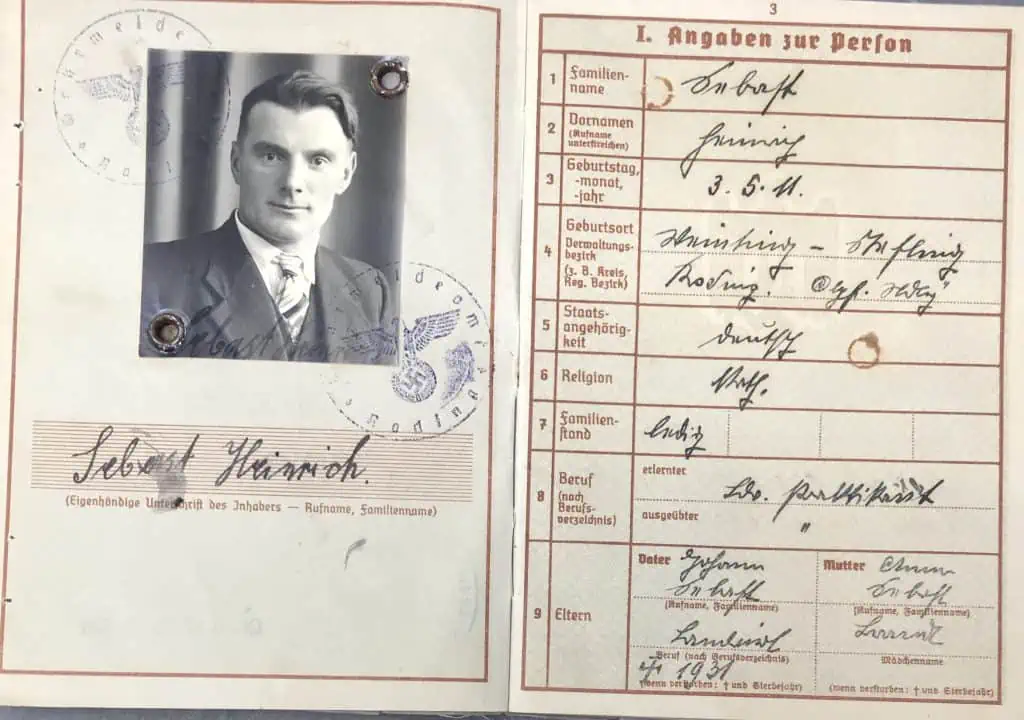 Sebast Heinrich.
(Eigenhändige Unterschrift des Inhabers — Rufname, Familienname)
3
I. Angaben zur Person
1 Familien-
name
Sebast
2 Vornamen
(Rufname
unterstreichen)
Heinrich
3 Geburtstag,
-monat,
-jahr
3. 5. 11.
4 Geburtsort
Verwaltungs-
bezirk
(z. B. Kreis,
Reg. Bezirk)
Roding.
5 Staats-
angehörig-
keit
deutsch
6 Religion
kath.
7 Familien-
stand
ledig
8 Beruf
(nach
Berufs-
verzeichnis)
erlernter
Ldw. Praktikant
ausgeübter
"
9 Eltern
Vater Johann
Sebast
(Rufname, Familienname)
Landwirt
Beruf (nach Berufsverzeichnis)
† 1931
(wenn verstorben: † und Sterbejahr)
Mutter Anna
Sebast
(Rufname, Familienname)
Mädchenname
(wenn verstorben: † und Sterbejahr)